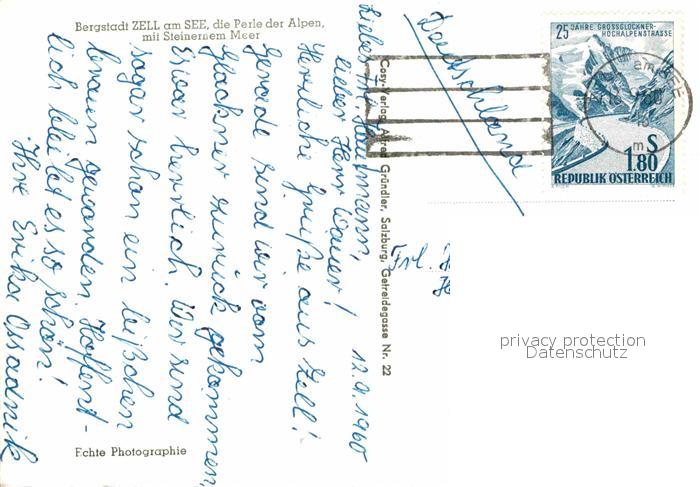 Bergstadt ZELL am SEE, die Perle der Alpen,
mit Steinernem Meer
12.9.1960
Liebes Frl. Hausmann,
lieber Herr Wauer!
Herzliche Grüße aus Zell!
Gerade sind wir vom
Glockner zurück gekommen,
Es war herrlich. Wir sind
sogar schon ein bißchen
braun geworden. Hoffent-
lich bleibt es so schön!
Ihre Erika Ossadnik
Echte Photographie
Cosy-Verlag Alfred Gründler, Salzburg, Getreidegasse Nr. 22
Deutschland
Frl.
25 JAHRE GROSSGLOCKNER-
HOCHALPENSTRASSE
S
1.80
REPUBLIK ÖSTERREICH
am SEE
privacy protection
Datenschutz